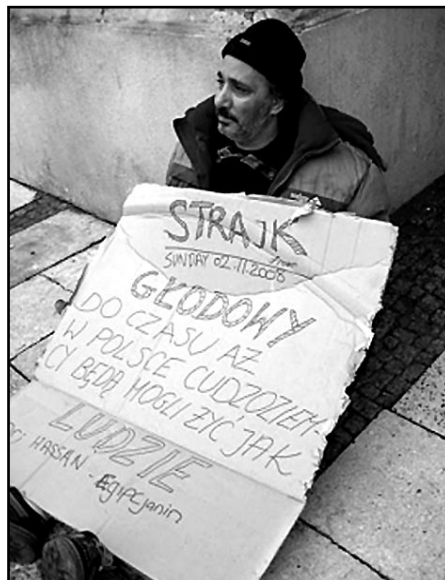 STRAJK
from
SUNDAY 02.11.2008
GŁODOWY
DO CZASU AŻ
W POLSCE CUDZOZIEM-
CY BĘDĄ MOGLI ŻYĆ JAK
LUDZIE
HASSAN - Egipcjanin